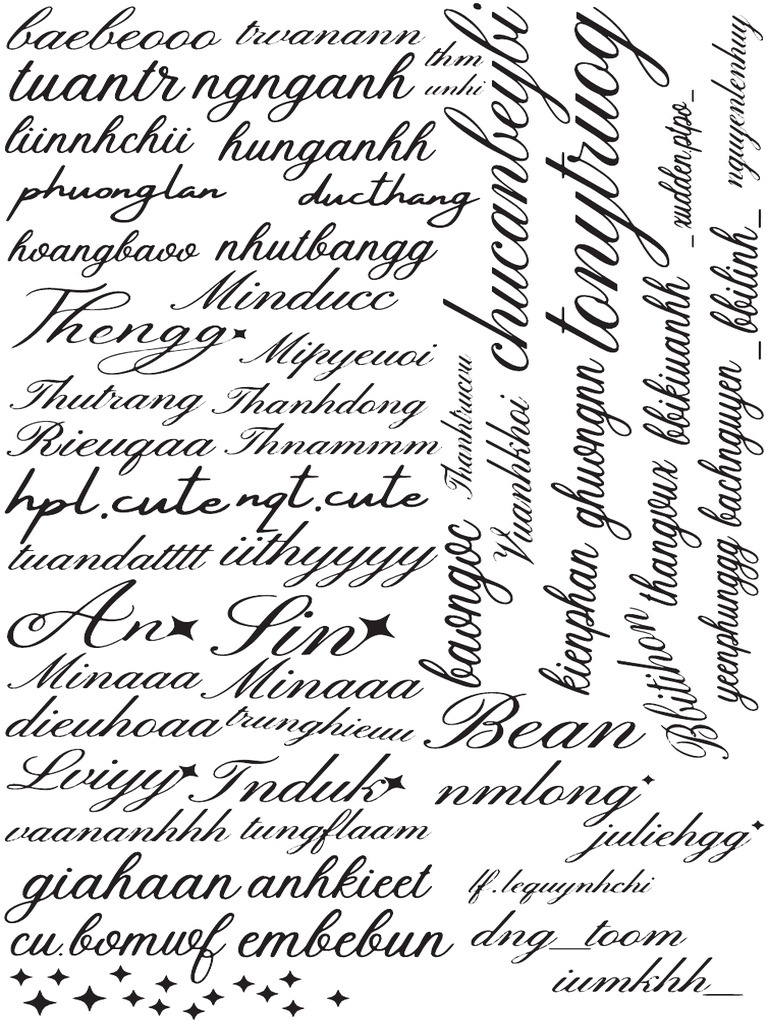 baebeooo trvanann
thm
unhi
tuantr ngnganh
liinnhchii hunganhh
phuonglan ducthang
hoangbaoo nhutbangg
Minducc
Thengg
Mipyeuoi
Thutrang Thanhdong
Rieuqaa Thnammm
hpl.cute nqt.cute
tuandatttt iithyyyy
An Sin
Minaaa Minaaa
dieuhoaa trunghieuu
Lviyy Tnduk
vaananhhh tungflaam
giahaan anhkieet
cu.bomwf embebun
chucanbeybi
tonytruog
_xudden,ptpo_
nguyenlenhuy
Thanhtrucou
Vuanhkhoi
baongoc
kienphan ghuongnn
thangoux bbikiuanhh
Bbitihon
yeenphunggg bachnguyen _bbilinh_
Bean
nmlong
juliehgg
lf.lequynhchi
dng_toom
iumkhh_